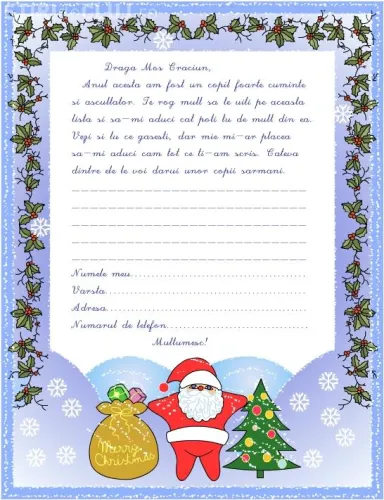 Draga Mos Craciun,
Anul acesta am fost un copil foarte cuminte
si ascultator. Te rog mult sa te uiti pe aceasta
lista si sa-mi aduci cat poti tu de mult din ea.
Vezi si tu ce gasesti, dar mie mi-ar placea
sa-mi aduci cam tot ce ti-am scris. Cateva
dintre de le voi darui unor copii sarmani.
Numele meu
Varsta
Adresa
Numarul de telefon
Multumesc!
Merry
Christmas